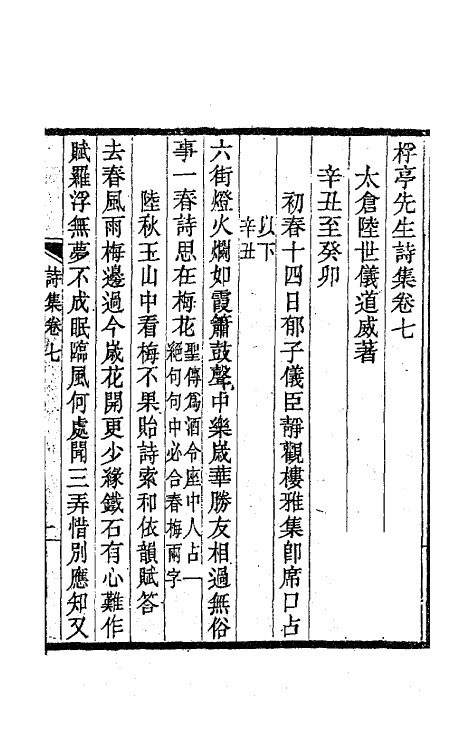 桴亭先生詩集卷七
太倉陸世儀道威著
辛丑至癸卯
初春十四日郁子儀臣靜觀樓雅集卽席口占
以下
辛丑
六街燈火爛如霞簫鼓聲中樂歲華勝友相過無俗
事一春詩思在梅花
聖傳爲酒令座中人占一
絕句句中必合春梅兩字
陸秋玉山中看梅不果貽詩索和依韻賦答
去春風雨梅邊過今歲花開更少緣鐵石有心難作
賦羅浮無夢不成眠臨風何處聞三弄惜別應知又
詩集卷七
一